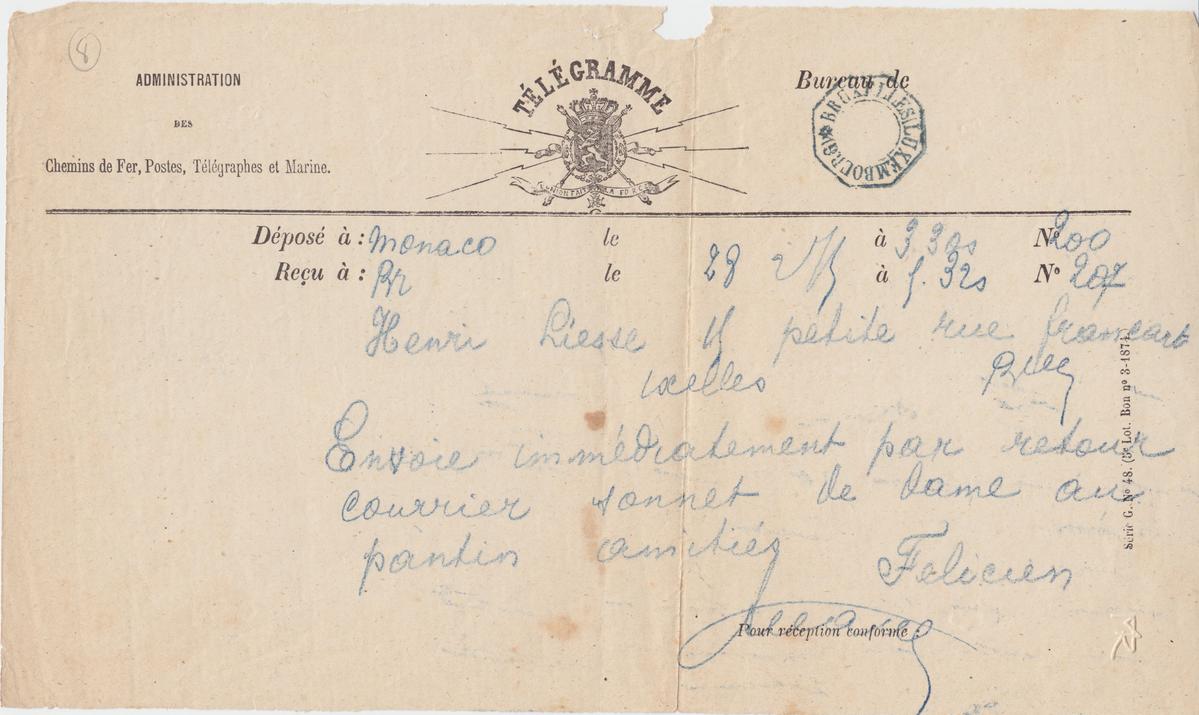 8
ADMINISTRATION
DES
Chemins de Fer, Postes, Télégraphes et Marine.
TÉLÉGRAMME
L'UNION FAIT LA FORCE
Bureau de
BRUXELLES (LUXEMBOURG)
Déposé à : Monaco le 28 à 3.30s N° 200
Reçu à : Br le à 5.32s N° 207
Henri Liesse 15 petite rue francart
ixelles
Envoie immédiatement par retour
courrier sonnet de dame au
pantin amitiés Felicien
Pour réception conforme :
Série G. N° 48. (5e Lot. Bon n° 3-1874)